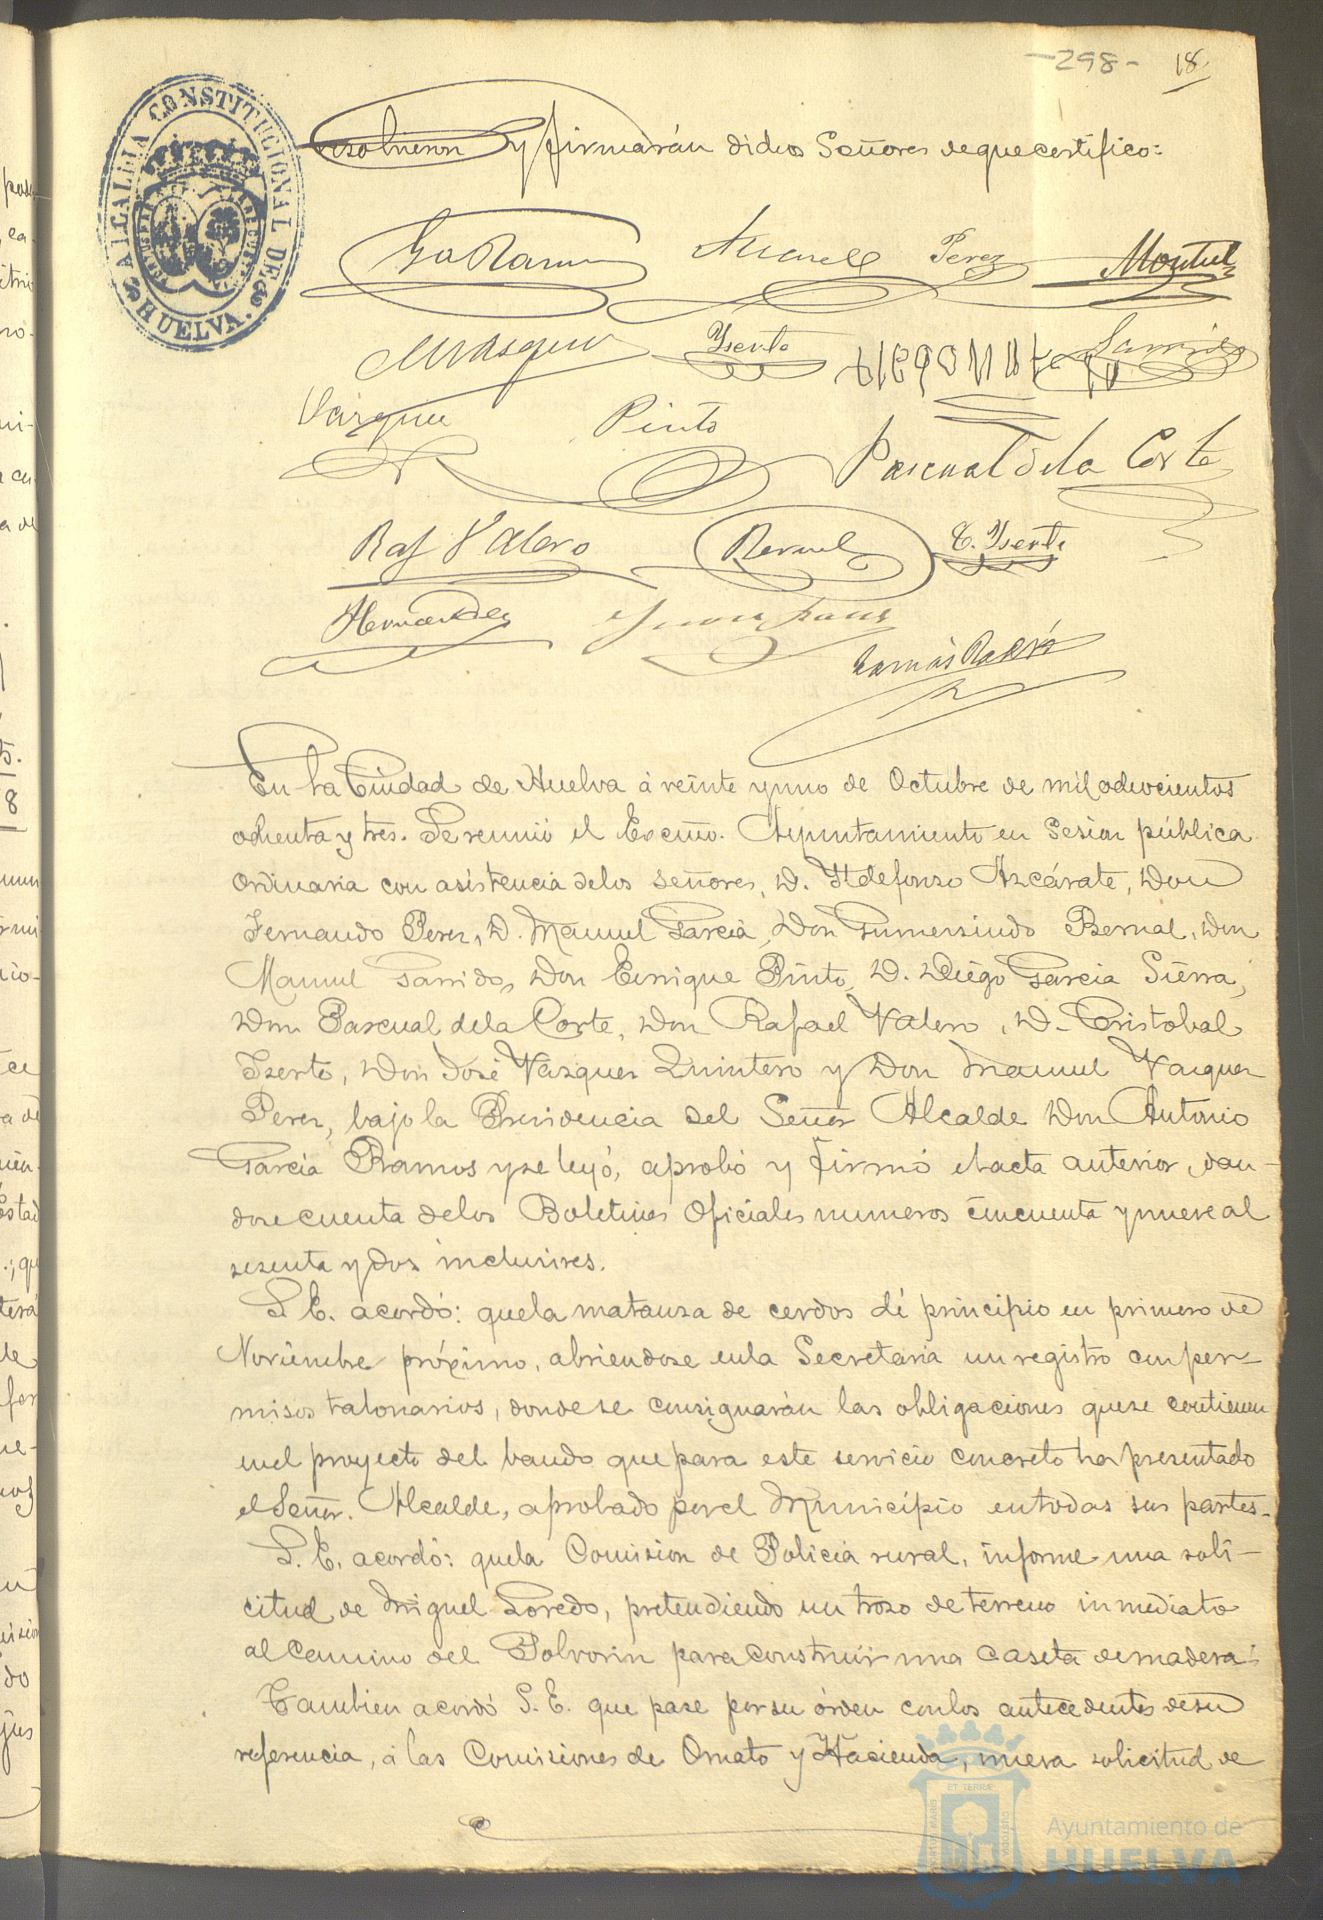 -298- 18
ALCALDIA CONSTITUCIONAL DE HUELVA.
resolvieron y firmarán dichos Señores de que certifico:
Ga Ramos Perez Montiel
Yserte Garrido
Vazquez Pinto Pascual de la Corte
Raf Valero Bernal C. Yserte
Hernandez
Tomás
En la Ciudad de Huelva á veinte y uno de Octubre de mil ochocientos
ochenta y tres. Se reunió el Excmo. Ayuntamiento en Sesion pública
Ordinaria con asistencia de los señores, D. Ildefonso Azcárate, Don
Fernando Perez, D. Manuel Garcia, Don Gumersindo Bernal, Don
Manuel Garrido, Don Enrique Pinto, D. Diego Garcia Sierra,
Don Pascual de la Corte, Don Rafael Valero, D. Cristobal
Yserte, Don José Vazquez Quintero y Don Manuel Vazquez
Perez, bajo la Presidencia del Señor Alcalde Don Antonio
Garcia Ramos y se leyó, aprobó y firmó el acta anterior, dan-
dose cuenta de los Boletines Oficiales numeros cincuenta y nueve al
sesenta y dos inclusives.
S. E. acordó: que la matanza de cerdos dé principio en primero de
Noviembre próximo, abriendose en la Secretaria un registro con per-
misos talonarios, donde se consignarán las obligaciones que se contienen
en el proyecto del bando que para este servicio concreto ha presentado
el Señor Alcalde, aprobado por el Municipio en todas sus partes.
S. E. acordó: que la Comision de Policia rural, informe una soli-
citud de Miguel Loredo, pretendiendo un trozo de terreno inmediato
al Camino del Polvorin para construir una caseta de madera.
Tambien acordó S. E. que pase por su órden con los antecedentes de su
referencia, á las Comisiones de Ornato y Hacienda, nueva solicitud de
Ayuntamiento de
HUELVA